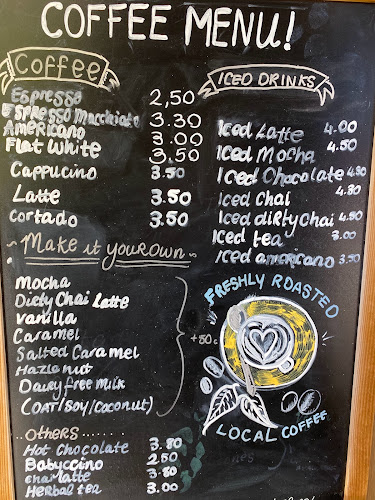 COFFEE MENU!
Coffee
Espresso 2,50
Espresso Macchiato 3.30
Americano 3.00
Flat White 3,50
Cappucino 3.50
Latte 3.50
Cortado 3.50
~ Make it your own ~
Mocha
Dirty Chai Latte
Vanilla
Caramel
Salted Caramel
Hazlenut
Dairy free Milk
(OAT/Soy/Coconut)
+50c
..Others......
Hot Chocolate 3.80
Babyccino 2.50
Chai Latte 3.80
Herbal tea 3.00
ICED DRINKS
Iced Latte 4.00
Iced Mocha 4.50
Iced Chocolate 4.50
Iced Chai 4.80
Iced diRty Chai 4.50
Iced tea 3.00
Iced americano 3.50
FRESHLY ROASTED
LOCAL COFFEE